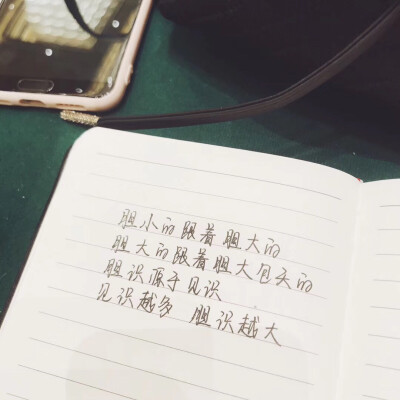 胆小的跟着胆大的
胆大的跟着胆大包天的
胆识源于见识
见识越多 胆识越大